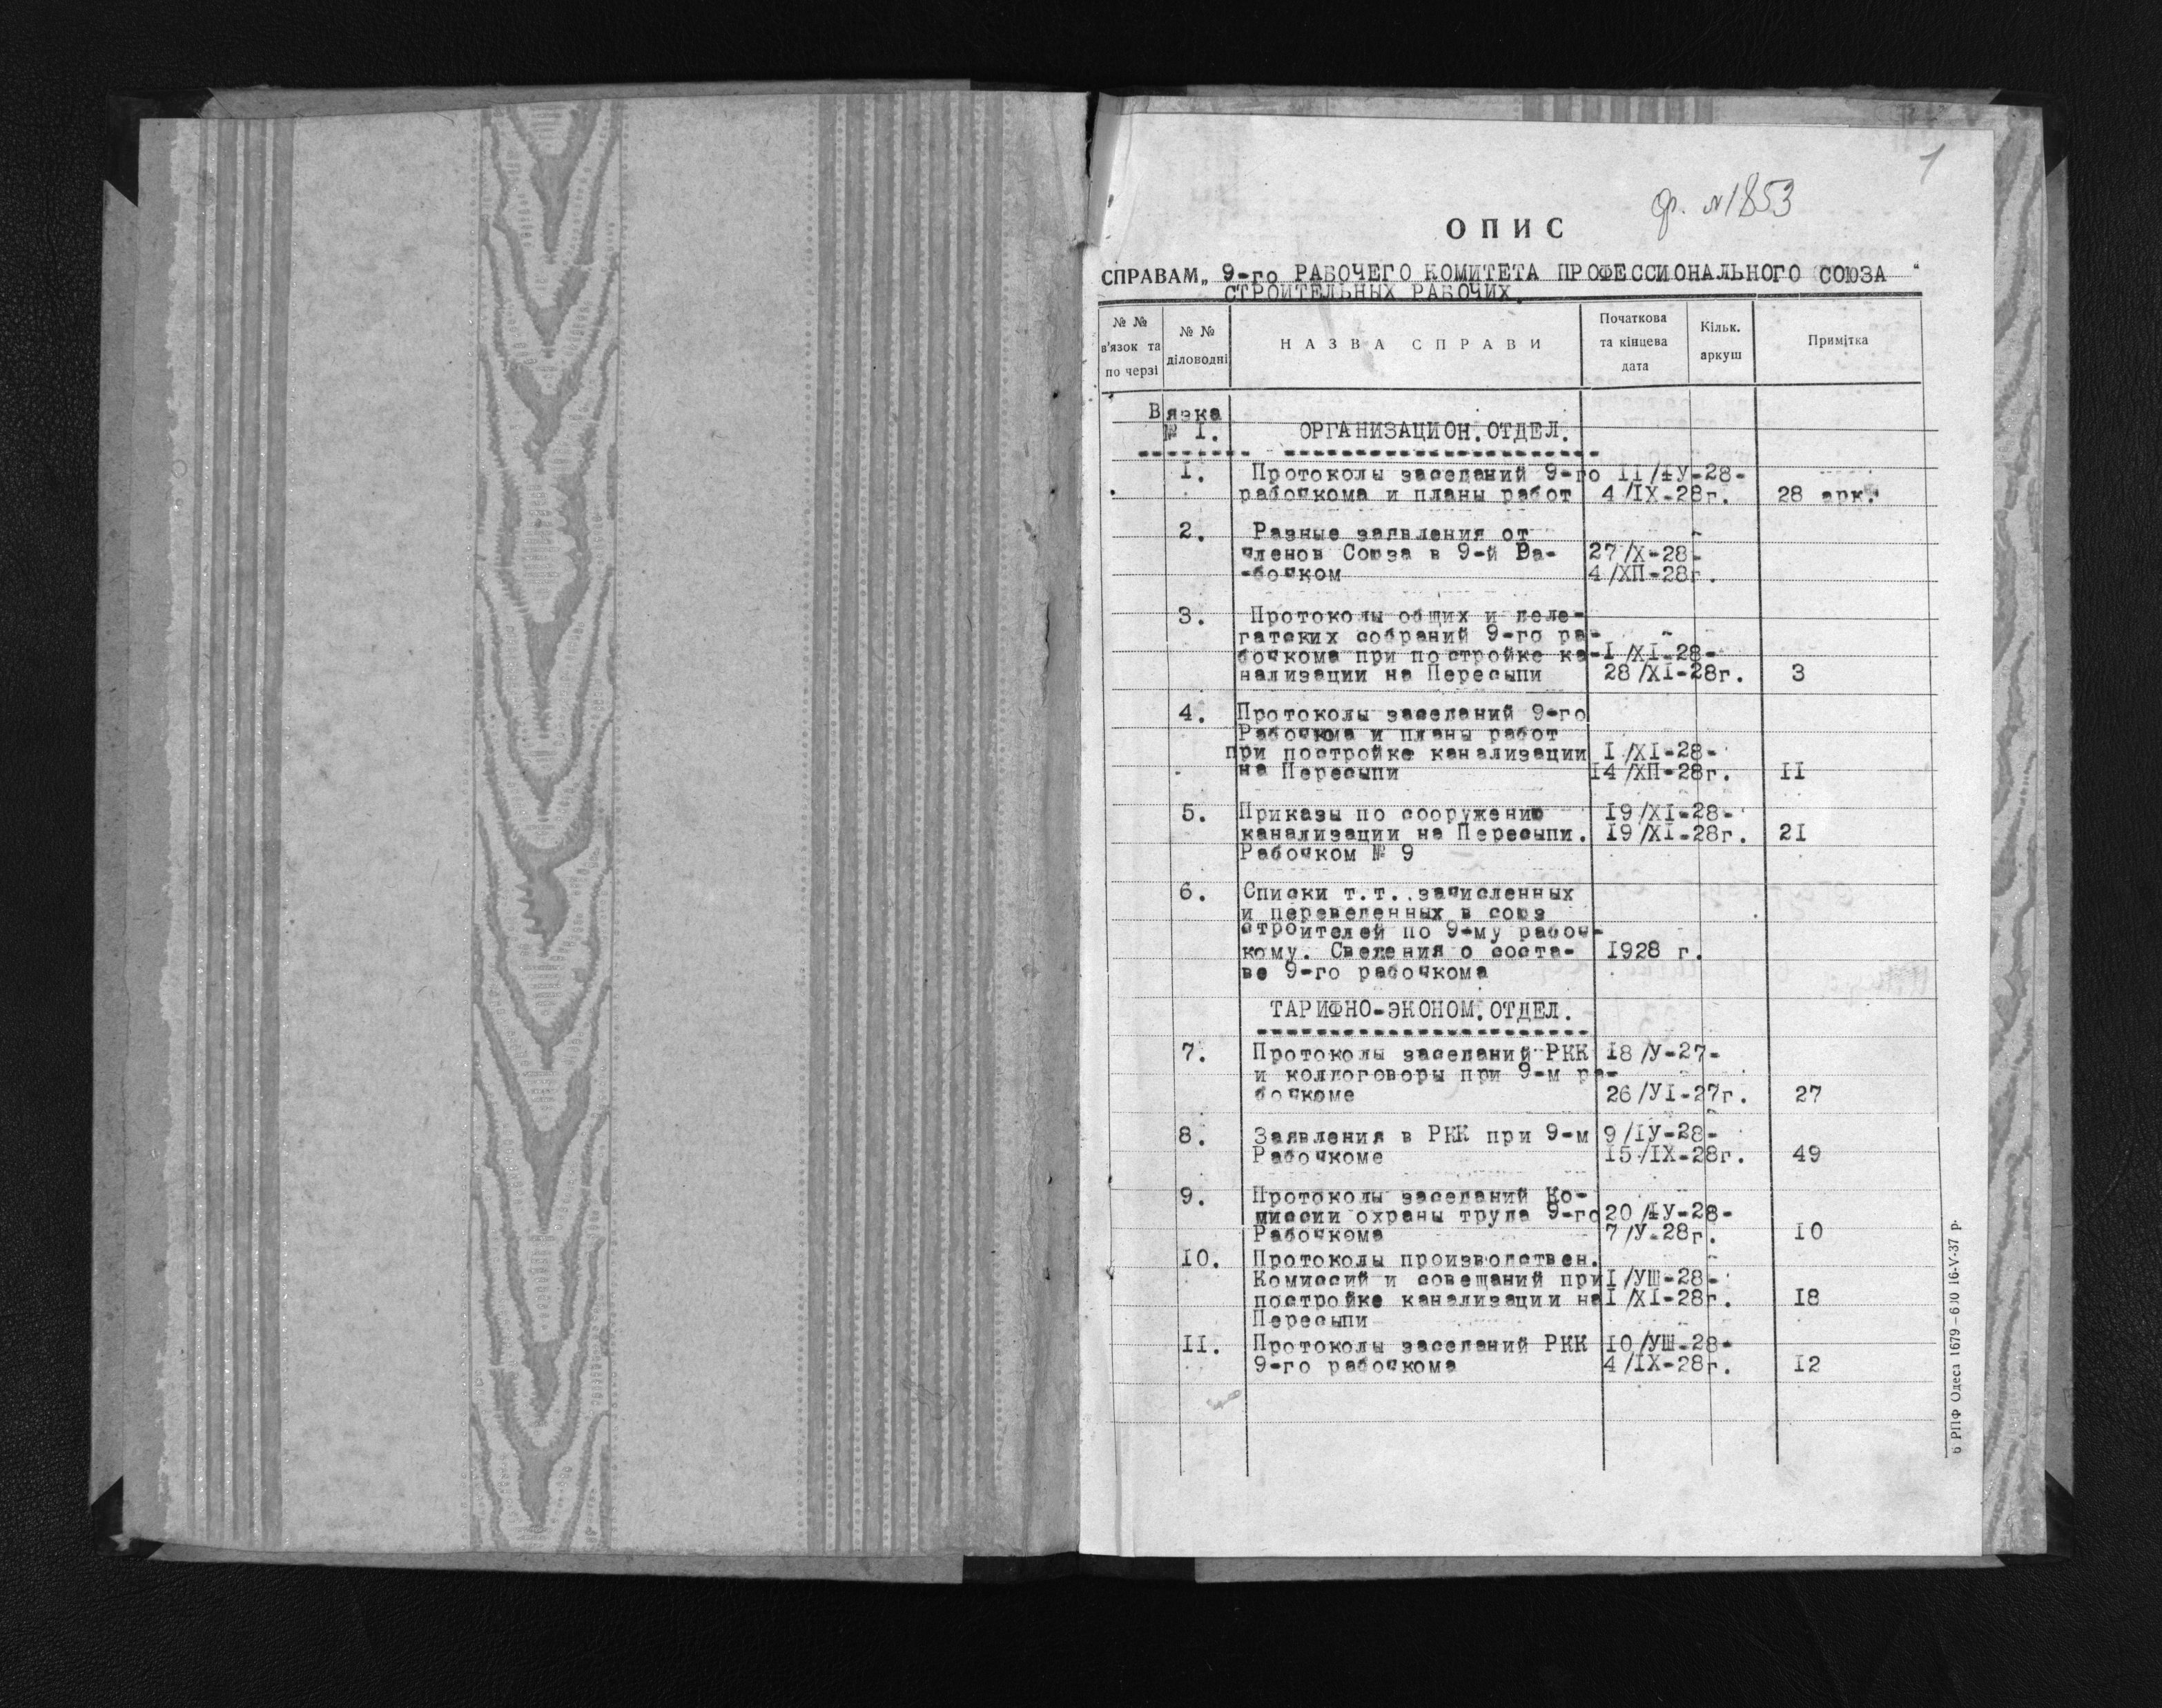 1
ф. №1853
ОПИС
СПРАВАМ „ 9-го РАБОЧЕГО КОМИТЕТА ПРОФЕССИОНАЛЬНОГО СОЮЗА “
СТРОИТЕЛЬНЫХ РАБОЧИХ.
№ № в'язок та по черзі
№ № діловодні
НАЗВА СПРАВИ
Початкова та кінцева дата
Кільк. аркуш
Примітка
Вязка
№ I. ОРГАНИЗАЦИОН.ОТДЕЛ.
1. Протоколы заседаний 9-го 11/IУ-28-
рабочкома и планы работ 4/IX-28г. 28 арк.
2. Разные заявления от
членов Союза в 9-й Ра- 27/X-28-
-бочком 4/ХП-28г.
3. Протоколы общих и деле-
гатских собраний 9-го ра-
бочкома при постройке ка- I/XI-28-
нализации на Пересыпи 28/XI-28г. 3
4. Протоколы заседаний 9-го
Рабочкома и планы работ
при постройке канализации I/XI-28-
на Пересыпи 14/ХП-28г. II
5. Приказы по сооружению 19/XI-28-
канализации на Пересыпи. 19/XI-28г. 21
Рабочком № 9
6. Списки т.т. зачисленных
и переведенных в союз
строителей по 9-му рабоч-
кому. Сведения о соста- 1928 г.
ве 9-го рабочкома
ТАРИФНО-ЭКОНОМ.ОТДЕЛ.
7. Протоколы заседаний РКК 18/У-27-
и колдоговоры при 9-м ра-
бочкоме 26/УI-27г. 27
8. Заявления в РКК при 9-м 9/IУ-28-
Рабочкоме 15/IX-28г. 49
9. Протоколы заседаний Ко-
миссии охраны труда 9-го 20/IУ-28-
Рабочкома 7/У-28г. 10
10. Протоколы производствен.
Комиссий и совещаний при I/УШ-28-
постройке канализации на I/XI-28г. 18
Пересыпи
11. Протоколы заседаний РКК 10/УШ-28-
9-го рабочкома 4/IX-28г. 12
6 РПФ Одеса 1679–600 16-V-37 р.